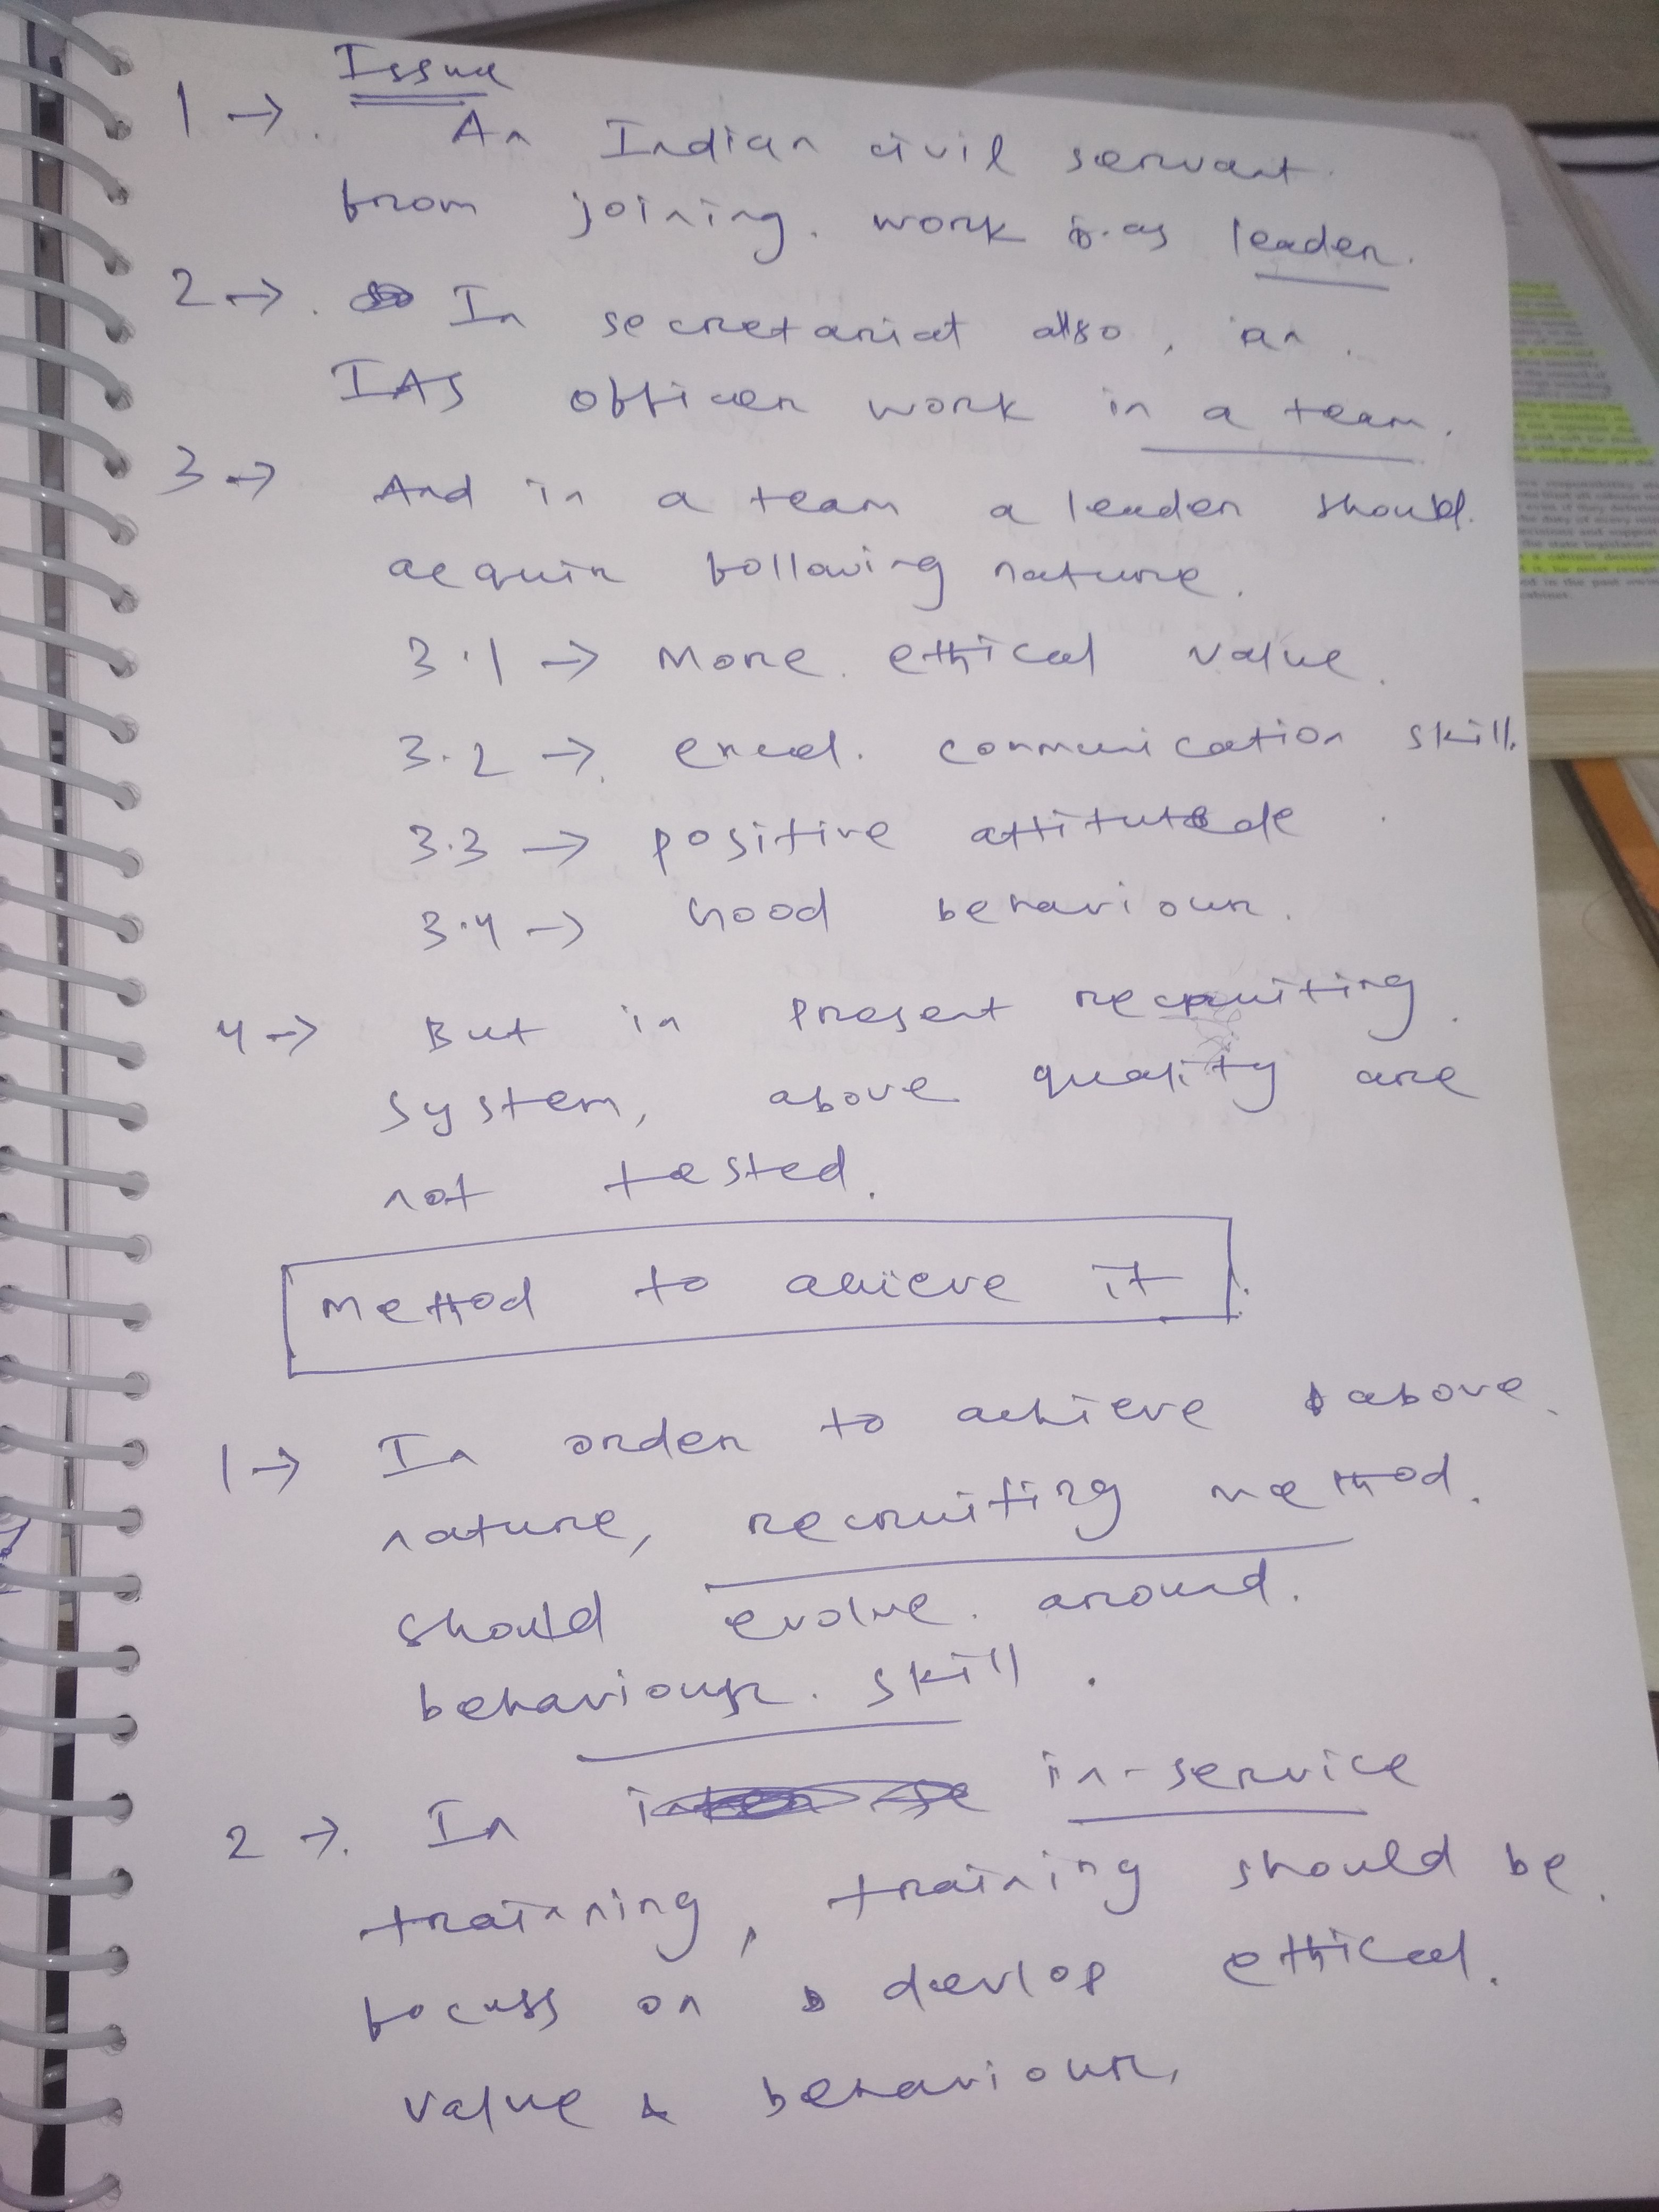 Issue
1 → An Indian civil servant
from joining. work as leader.
2 → In secretariat also, an
IAS officer work in a team.
3 → And in a team a leader should
acquir following nature.
3.1 → More ethical value.
3.2 → excel. communication skill.
3.3 → positive attitude
3.4 → Good behaviour.
4 → But in present recruiting
system, above quality are
not tested.
Method to achieve it.
1 → In order to achieve above
nature, recruiting method
should evolve around.
behaviour skill.
2 → In in-service
training, training should be
focuss on devlop ethical
value & behaviour.